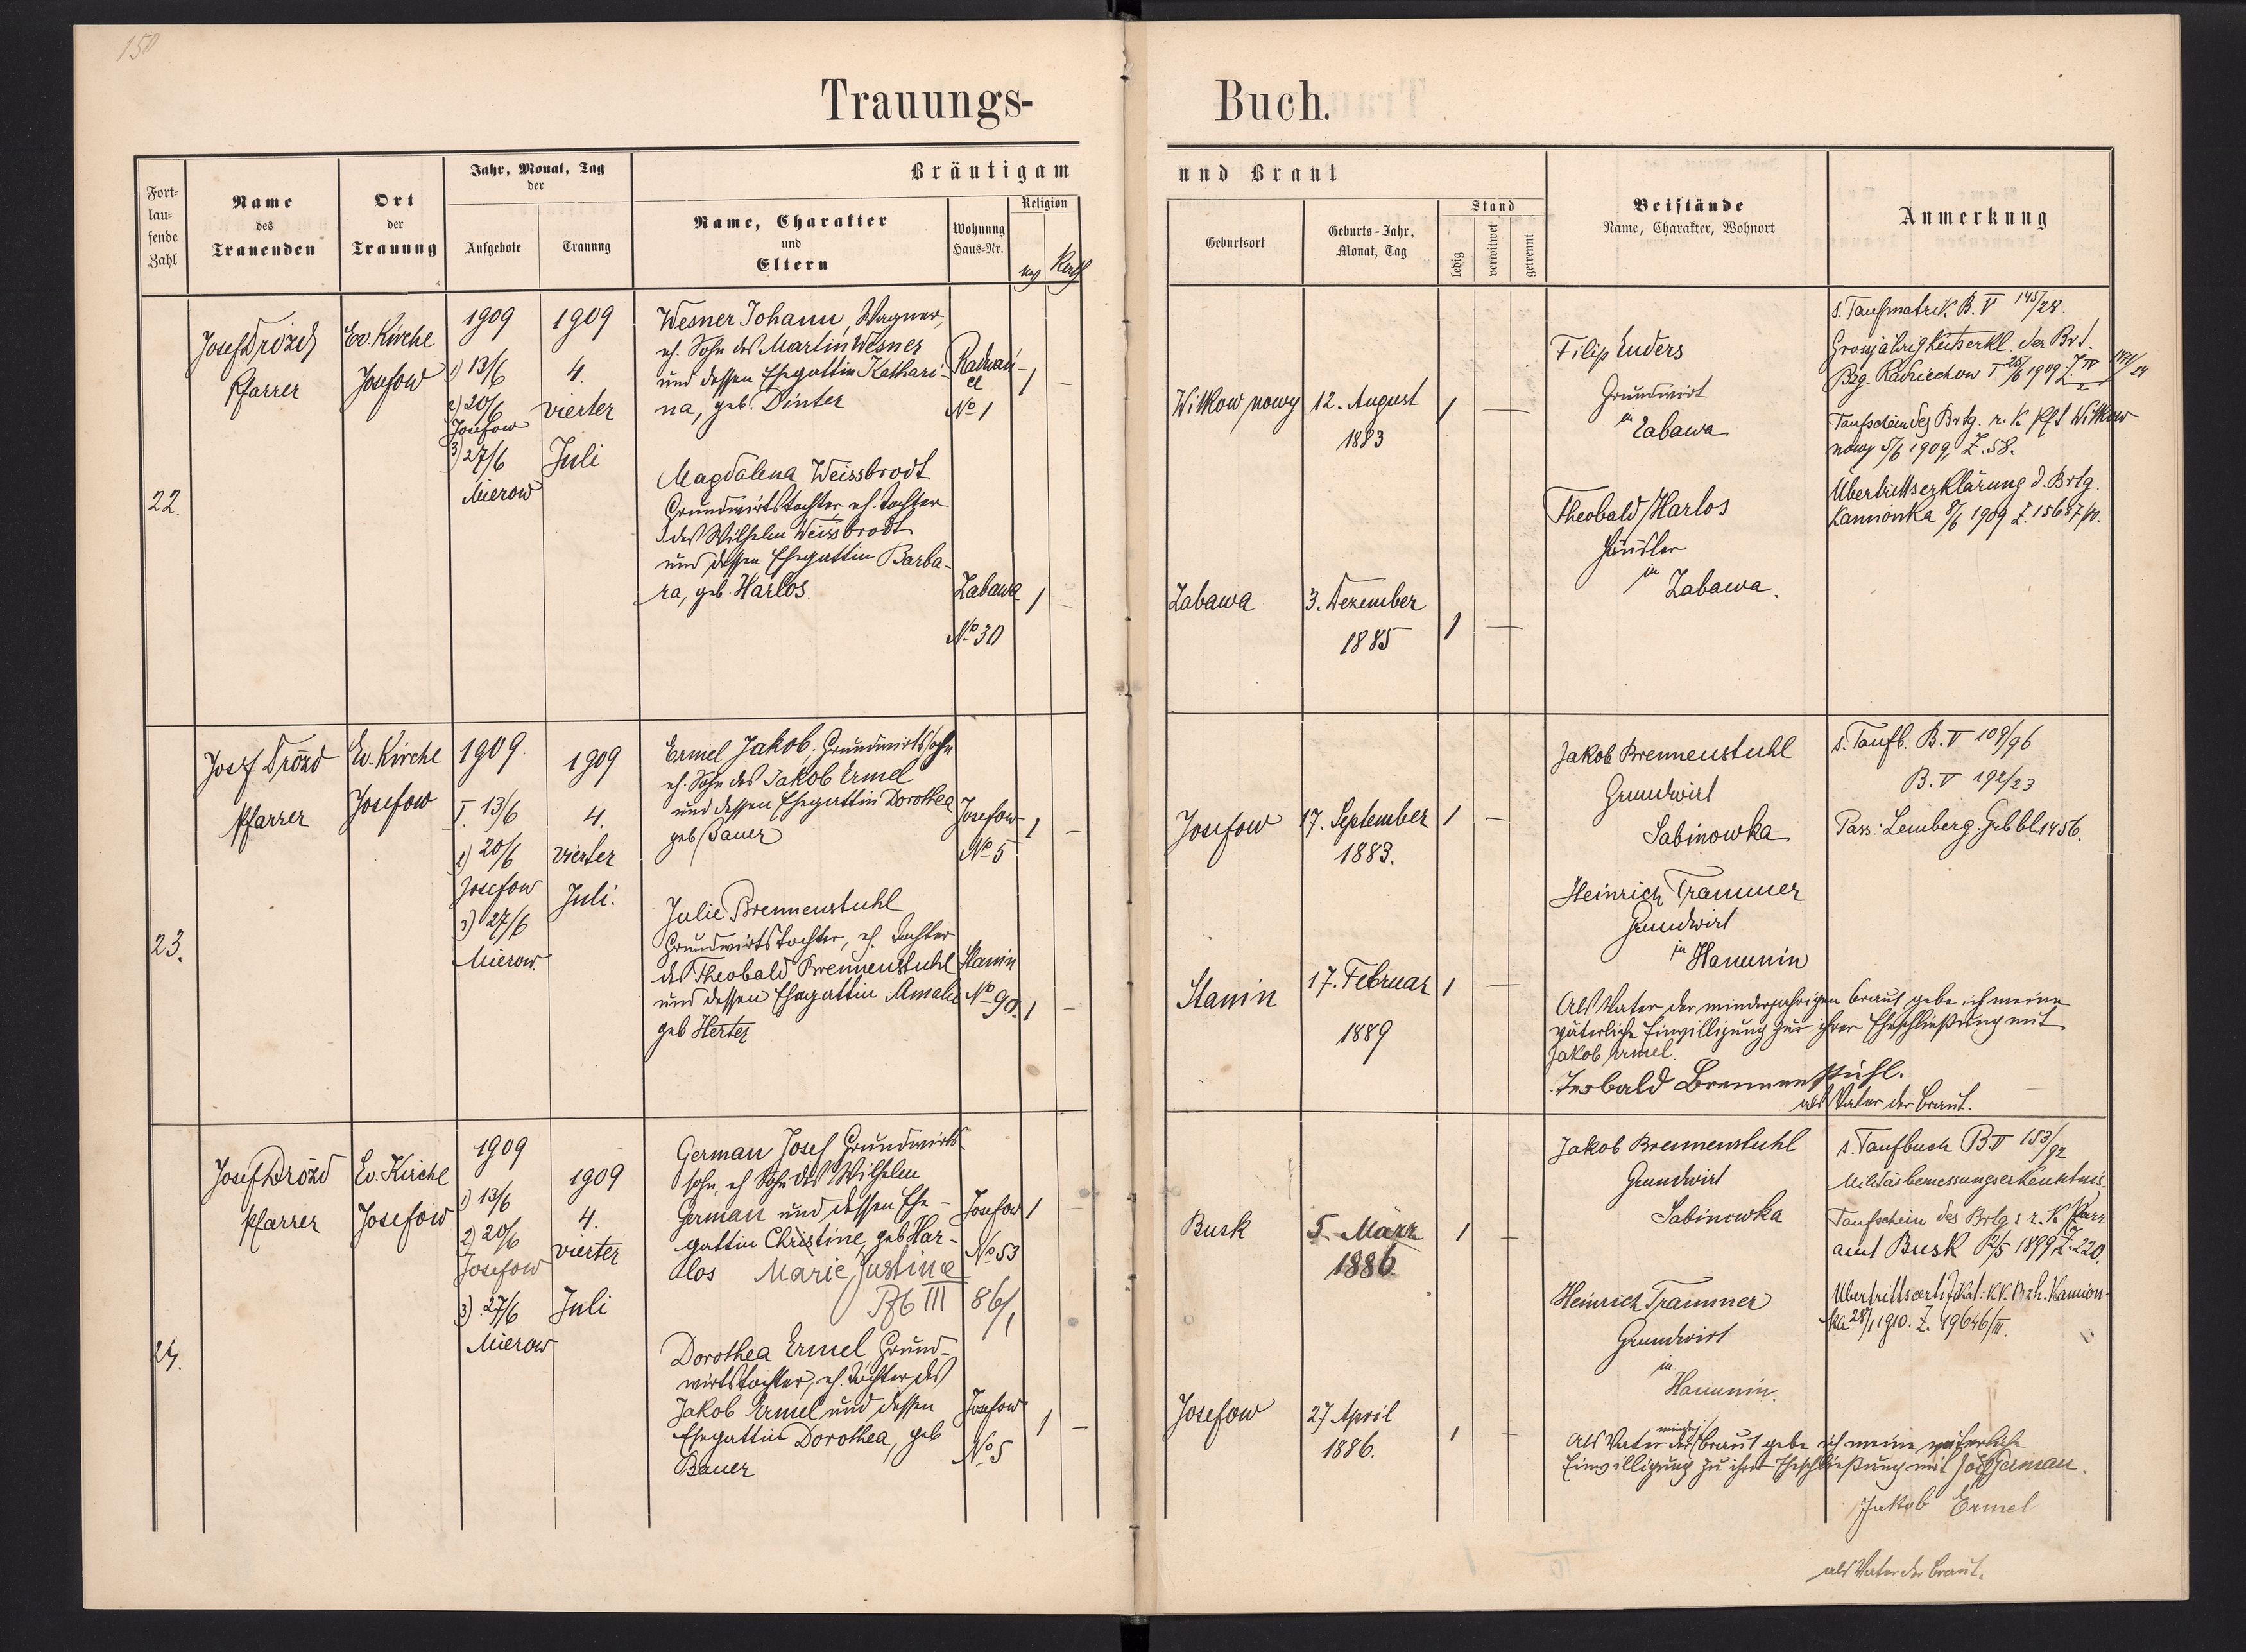 150
Trauungs-
Buch.
Fort-
lau-
fende
Zahl
Name
des
Trauenden
Ort
der
Trauung
Jahr, Monat, Tag
der
Aufgebote
Trauung
Bräutigam
Name, Charakter
und
Eltern
Wohnung
Haus-Nr.
Religion
und Braut
Geburtsort
Geburts-Jahr,
Monat, Tag
Stand
ledig
verwitwet
getrennt
Beistände
Name, Charakter, Wohnort
Anmerkung
22.
Josef Drozd
Pfarrer
Ev. Kirche
Josefow
1909
1) 13/6
2) 20/6
Josefow
3) 27/6
Mierow
1909
4.
vierter
Juli
Wesner Johann, Wagner,
eh. Sohn des Martin Wesner
und dessen Ehegattin Kathari-
na, geb. Dinter
No 1
1 –
Magdalena Weissbrodt
Grundwirtstochter, eh. Tochter
des Wilhelm Weissbrodt
und dessen Ehegattin Barba-
ra, geb. Harlos.
Zabawa
No 30
1 –
Witkow nowy
12. August
1883
1 –
Zabawa
3. Dezember
1885
1 –
Filip Enders
Grundwirt
in
Zabawa
Theobald Harlos
Händler
in
Zabawa.
s. Taufmatrik. B. V 145/28.
Grossjährigkeitserkl. der Brt.
Bzg. Radziechow 25/6 1909
Taufschein des Brtg. r. k. Pft Witkow
nowy 5/6 1909, Z. 58.
Übertrittserklärung d. Brtg.
Kamionka 8/6 1909 Z. 15687/pr.
23.
Josef Drozd
Pfarrer
Ev. Kirche
Josefow
1909.
I. 13/6
2) 20/6
Josefow
3) 27/6
Mierow.
1909
4.
vierter
Juli.
Ermel Jakob, Grundwirtssohn
eh. Sohn des Jakob Ermel
und dessen Ehegattin Dorothea
geb. Bauer
Josefow
No 5
1 –
Julie Brennenstuhl
Grundwirtstochter, eh. Tochter
des Theobald Brennenstuhl
und dessen Ehegattin Amalie
geb Herter
Stanin
No 90.
1 –
Josefow
17. September
1883.
1 –
Stanin
17. Februar
1889
1 –
Jakob Brennenstuhl
Grundwirt
Sabinowka
Heinrich Trammer
Grundwirt
in
Hanunin
s. Taufb. B. V 109/96
B. V 192/23
Pass: Lemberg. Grbbl 1456.
Als Vater der minderjährigen Braut gebe ich meine
väterliche Einwilligung zur ihrer Eheschließung mit
Jakob Ermel.
Teobald Brennenstuhl.
als Vater der Braut.
24.
Josef Drozd
Pfarrer
Ev. Kirche
Josefow
1909
1) 13/6
2) 20/6
Josefow
3) 27/6
Mierow
1909
4.
vierter
Juli
German Josef Grundwirts-
sohn, eh Sohn des Wilhelm
German und dessen Ehe-
gattin Christine, geb Har-
los Marie Justine
Pfb III 86/1
Josefow
No 53
1 –
Dorothea Ermel Grund-
wirtstochter, eh. Tochter des
Jakob Ermel und dessen
Ehegattin Dorothea, geb
Bauer
Josefow
No 5
1 –
Busk
5. März
1886
1 –
Josefow
27 April
1886.
1 –
Jakob Brennenstuhl
Grundwirt
Sabinowka
Heinrich Trammer
Grundwirt
in
Hanunin.
s. Taufbuch B. V 153/92
Militärbemessungserkenntnis.
Taufschein des Brtg: r. K. Pfarr
amt Busk 12/5 1899 Z. 220.
Übertrittscertifikat: KK. Bzh. Kamion-
ka 28/1 1910. Z. 49646/III.
Als Vater der mindrj Braut gebe ich meine väterliche
Einwilligung zu ihrer Eheschließung mit Josef German.
Jakob Ermel
als Vater der Braut.